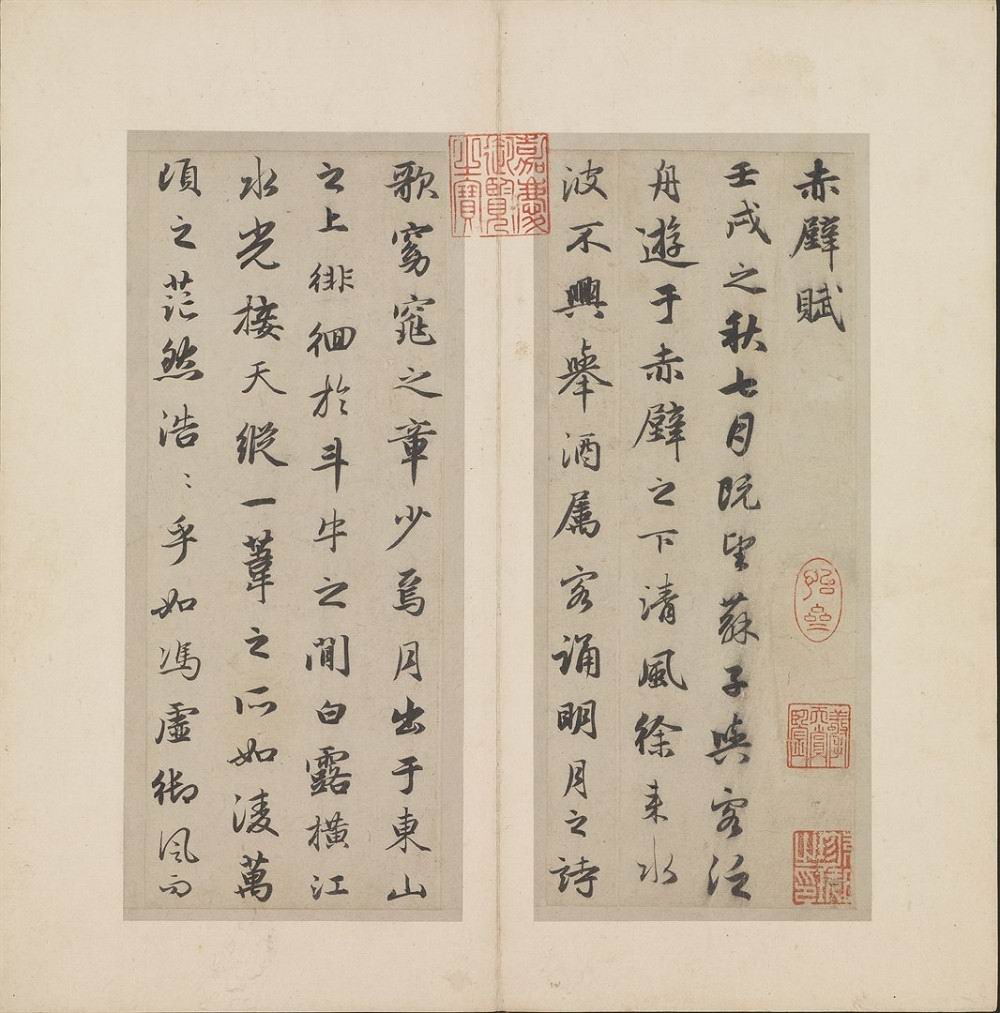 赤壁賦
壬戌之秋七月既望蘇子與客泛
舟遊于赤壁之下清風徐来水
波不興舉酒属客誦明月之詩
歌窈窕之章少焉月出于東山
之上徘徊於斗牛之間白露橫江
水光接天縱一葦之所如凌萬
頃之茫然浩〻乎如馮虛御風而
嘉慶御覽之寶